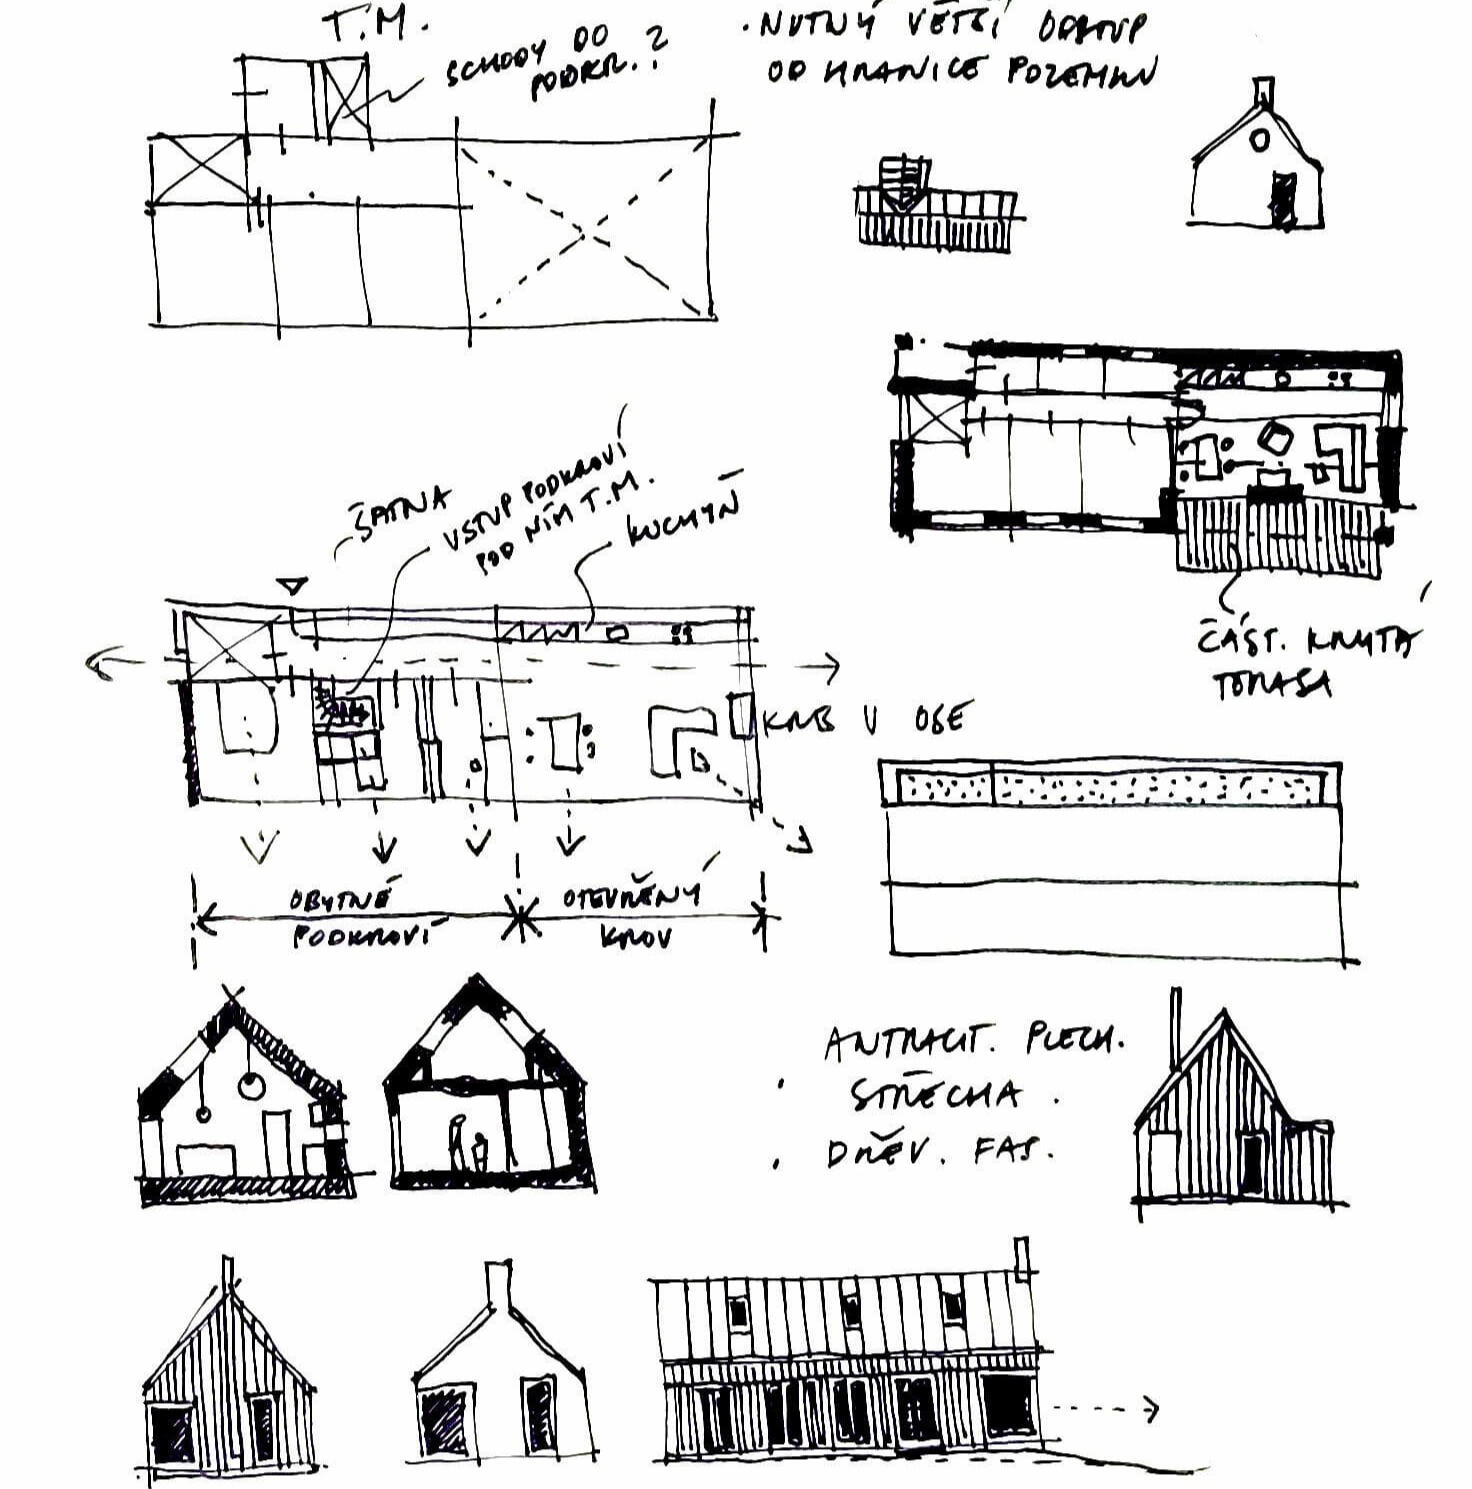 T.M.
SCHODY DO
PODKR.?
· NUTNÝ VĚTŠÍ ODSTUP
OD HRANICE POZEMKU
ŠATNA
VSTUP PODKROVÍ
POD NÍM T.M.
KUCHYŇ
ČÁST. KRYTÁ
TERASA
KRB V OSE
OBYTNÉ
PODKROVÍ
OTEVŘENÝ
KROV
ANTRACIT. PLECH.
· STŘECHA .
· DŘEV. FAS.